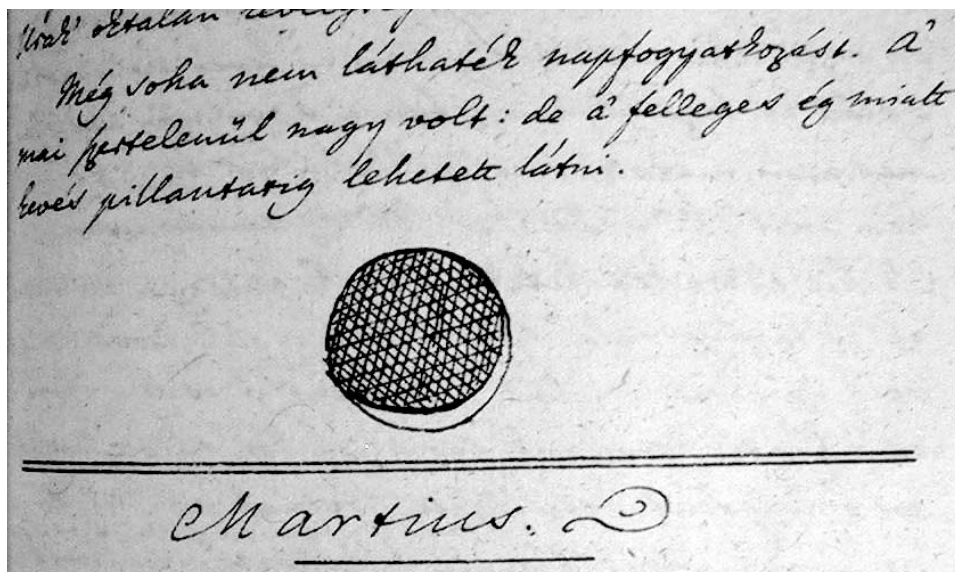 oktalan
Még soha nem láthaték napfogyatkozást. A'
mai szertelenül nagy volt: de a' felleges ég miatt
kevés pillantatig lehetett látni.
Martius.